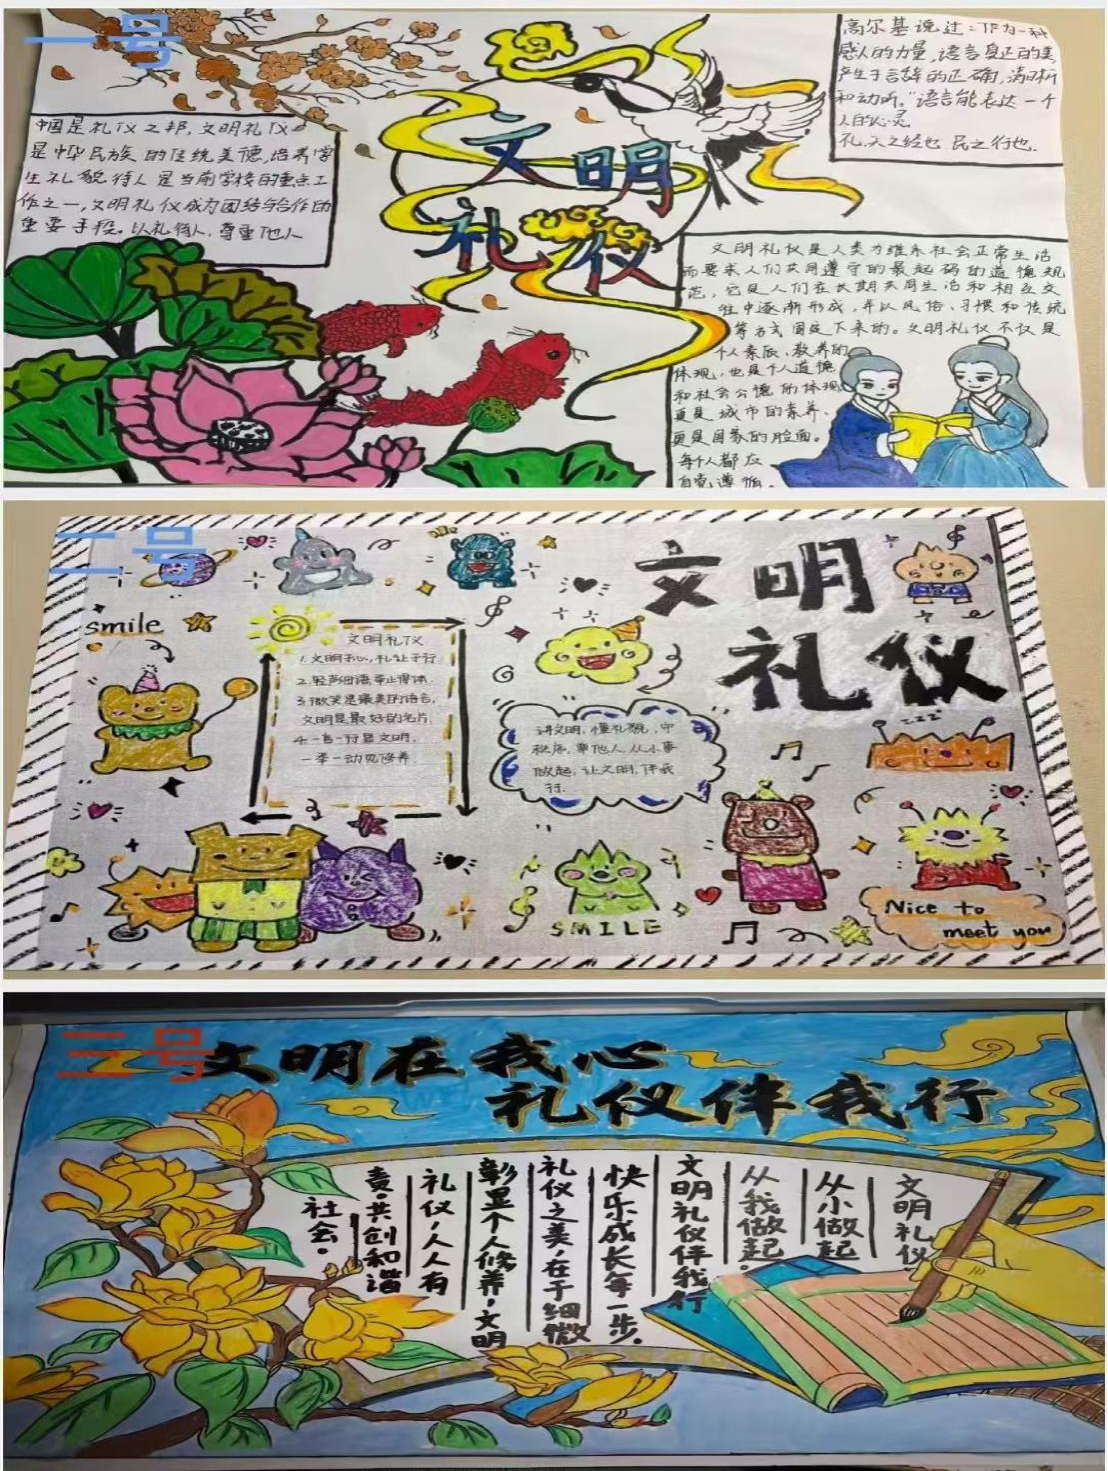 一号
文明
礼仪
中国是礼仪之邦,文明礼仪
是中华民族的传统美德,培养学
生礼貌待人是当前学校的重点工
作之一,文明礼仪成为团结与合作的
重要手段。以礼待人,尊重他人
高尔基说过:"作为一种
感人的力量,语言真正的美,
产生于言辞的正确,清晰
和动听。"语言能表达一个
人的心灵
礼,天之经也 民之行也.
文明礼仪是人类为维系社会正常生活
而要求人们共同遵守的最起码的道德规
范,它是人们在长期共同生活和相互交
往中逐渐形成,并以风俗、习惯和传统
等方式固定下来的。文明礼仪不仅是
个人素质、教养的
体现,也是个人道德
和社会公德的体现
更是城市的素养、
更是国家的脸面。
每个人都应
自觉遵循。
二号
文明
礼仪
smile
文明礼仪
1.文明于心,礼让于行.
2.轻声细语,举止得体.
3.微笑是最美的语言,
文明是最好的名片.
4.一言一行显文明,
一举一动见修养.
讲文明,懂礼貌,守
秩序,尊他人,从小事
做起,让文明,伴我
行.
zzz
SMILE
Nice to
meet you
三号
文明在我心
礼仪伴我行
文明礼仪
从小做起
从我做起。
文明礼仪伴我行
快乐成长每一步。
礼仪之美,在于细微
彰显个人修养,文明
礼仪,人人有
责。共创和谐
社会。